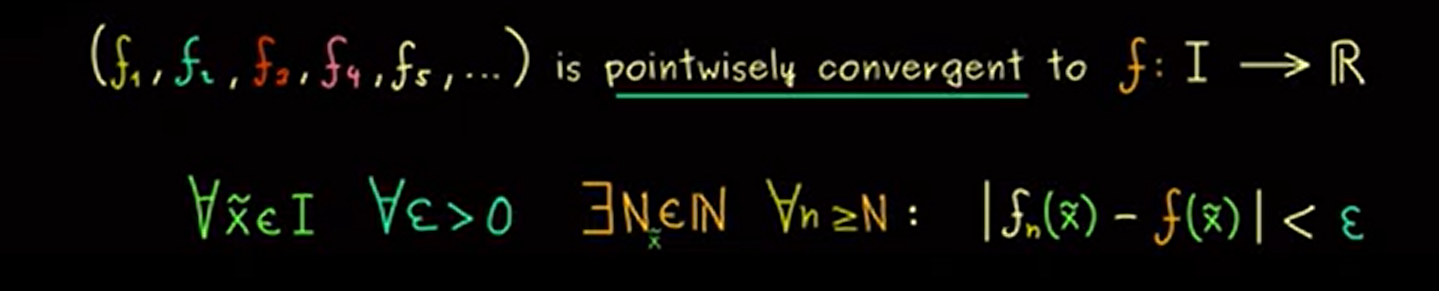 (f₁, f₂, f₃, f₄, f₅, ...) is pointwisely convergent to f: I ⟶ ℝ
∀x̃∈I ∀ε>0 ∃N_x̃∈ℕ ∀n≥N : |fₙ(x̃) - f(x̃)| < ε